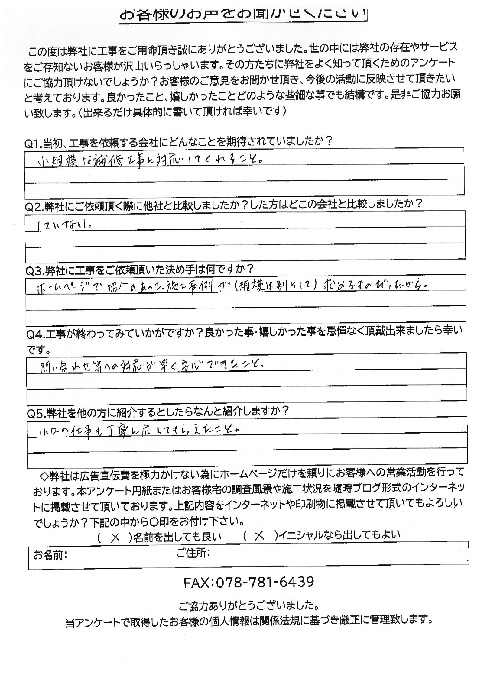 お客様のお声をお聞かせください
この度は弊社に工事をご用命頂き誠にありがとうございました。世の中には弊社の存在やサービス
をご存知ないお客様が沢山いらっしゃいます。その方たちに弊社をよく知って頂くためのアンケート
にご協力頂けないでしょうか？お客様のご意見をお聞かせ頂き、今後の活動に反映させて頂きたい
と考えております。良かったこと、嬉しかったことどのような些細な事でも結構です。是非ご協力お願
い致します。（出来るだけ具体的に書いて頂ければ幸いです）
Q1.当初、工事を依頼する会社にどんなことを期待されていましたか？
小規模な補修工事に対応してくれること。
Q2.弊社にご依頼頂く際に他社と比較しましたか？した方はどこの会社と比較しましたか？
していない。
Q3.弊社に工事をご依頼頂いた決め手は何ですか？
ホームページで紹介のあった施工事例が（規模は別として）求めるものだったから。
Q4.工事が終わってみていかがですか？良かった事・嬉しかった事を忌憚なく頂戴出来ましたら幸い
です。
問い合わせ等への対応が早く安心できたこと。
Q5.弊社を他の方に紹介するとしたらなんと紹介しますか？
小口の仕事も丁寧に応じてもらえたこと。
◇弊社は広告宣伝費を極力かけない為にホームページだけを頼りにお客様への営業活動を行って
おります。本アンケート用紙またはお客様宅の調査風景や施工状況を随時ブログ形式のインターネッ
トに掲載させて頂いております。上記内容をインターネットや印刷物に掲載させて頂いてもよろしい
でしょうか？下記の中から〇印をお付け下さい。
（ × ）名前を出しても良い （ × ）イニシャルなら出してもよい
お名前： ご住所：
FAX：078-781-6439
ご協力ありがとうございました。
当アンケートで取得したお客様の個人情報は関係法規に基づき厳正に管理致します。